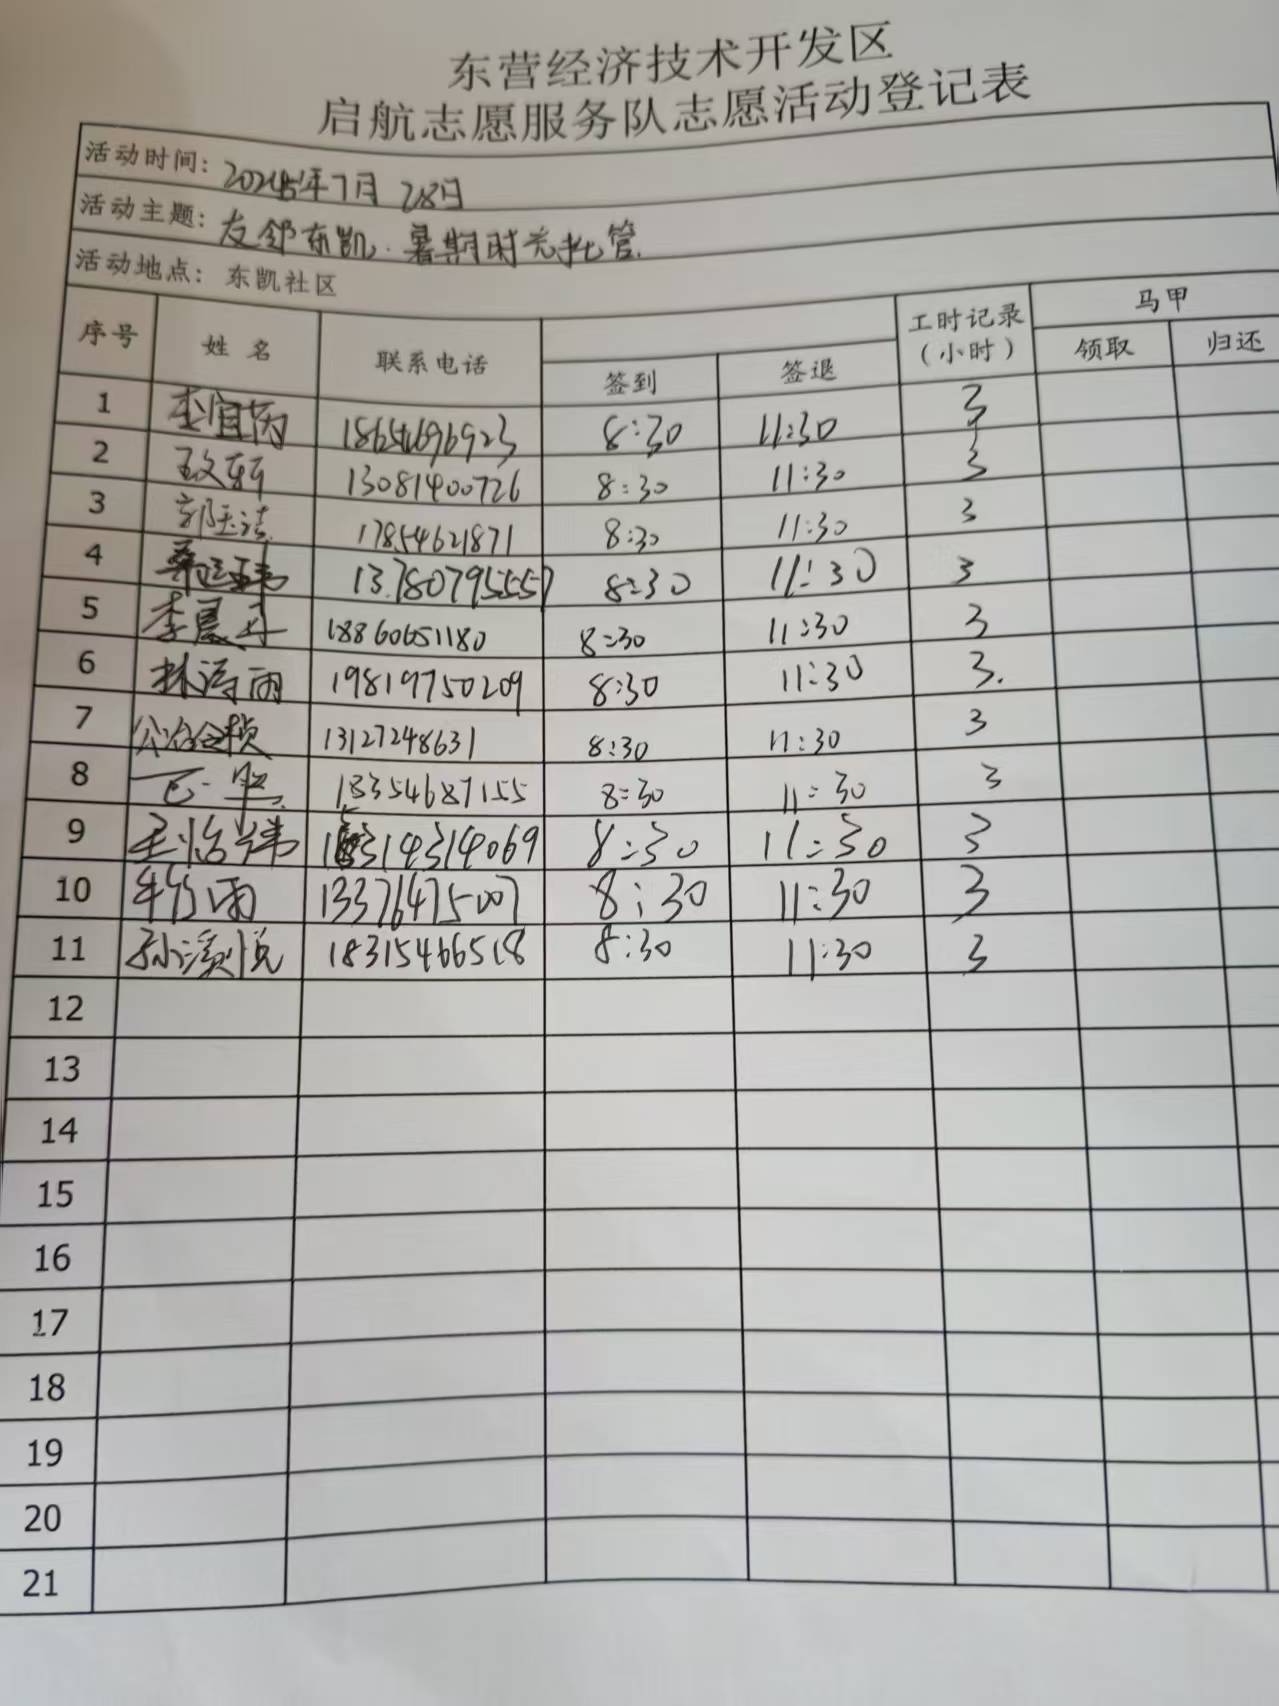 东营经济技术开发区
启航志愿服务队志愿活动登记表
活动时间： 年7月28日
活动主题：友邻东凯·暑期时光托管
活动地点：东凯社区
序号 姓名 联系电话 签到 签退 工时记录（小时） 马甲 领取 归还
1 李宜芮 18654696923 8:30 11:30 3
2 13081400726 8:30 11:30 3
3 17854621871 8:30 11:30 3
4 13780795557 8:30 11:30 3
5 李晨 18860651180 8:30 11:30 3
6 林涛雨 19819750209 8:30 11:30 3.
7 公冶 13127248631 8:30 11:30 3
8 18354687155 8:30 11:30 3
9 王怡 8:30 11:30 3
10 雨 13376475007 8:30 11:30 3
11 孙溪悦 18315466518 8:30 11:30 3
12
13
14
15
16
17
18
19
20
21